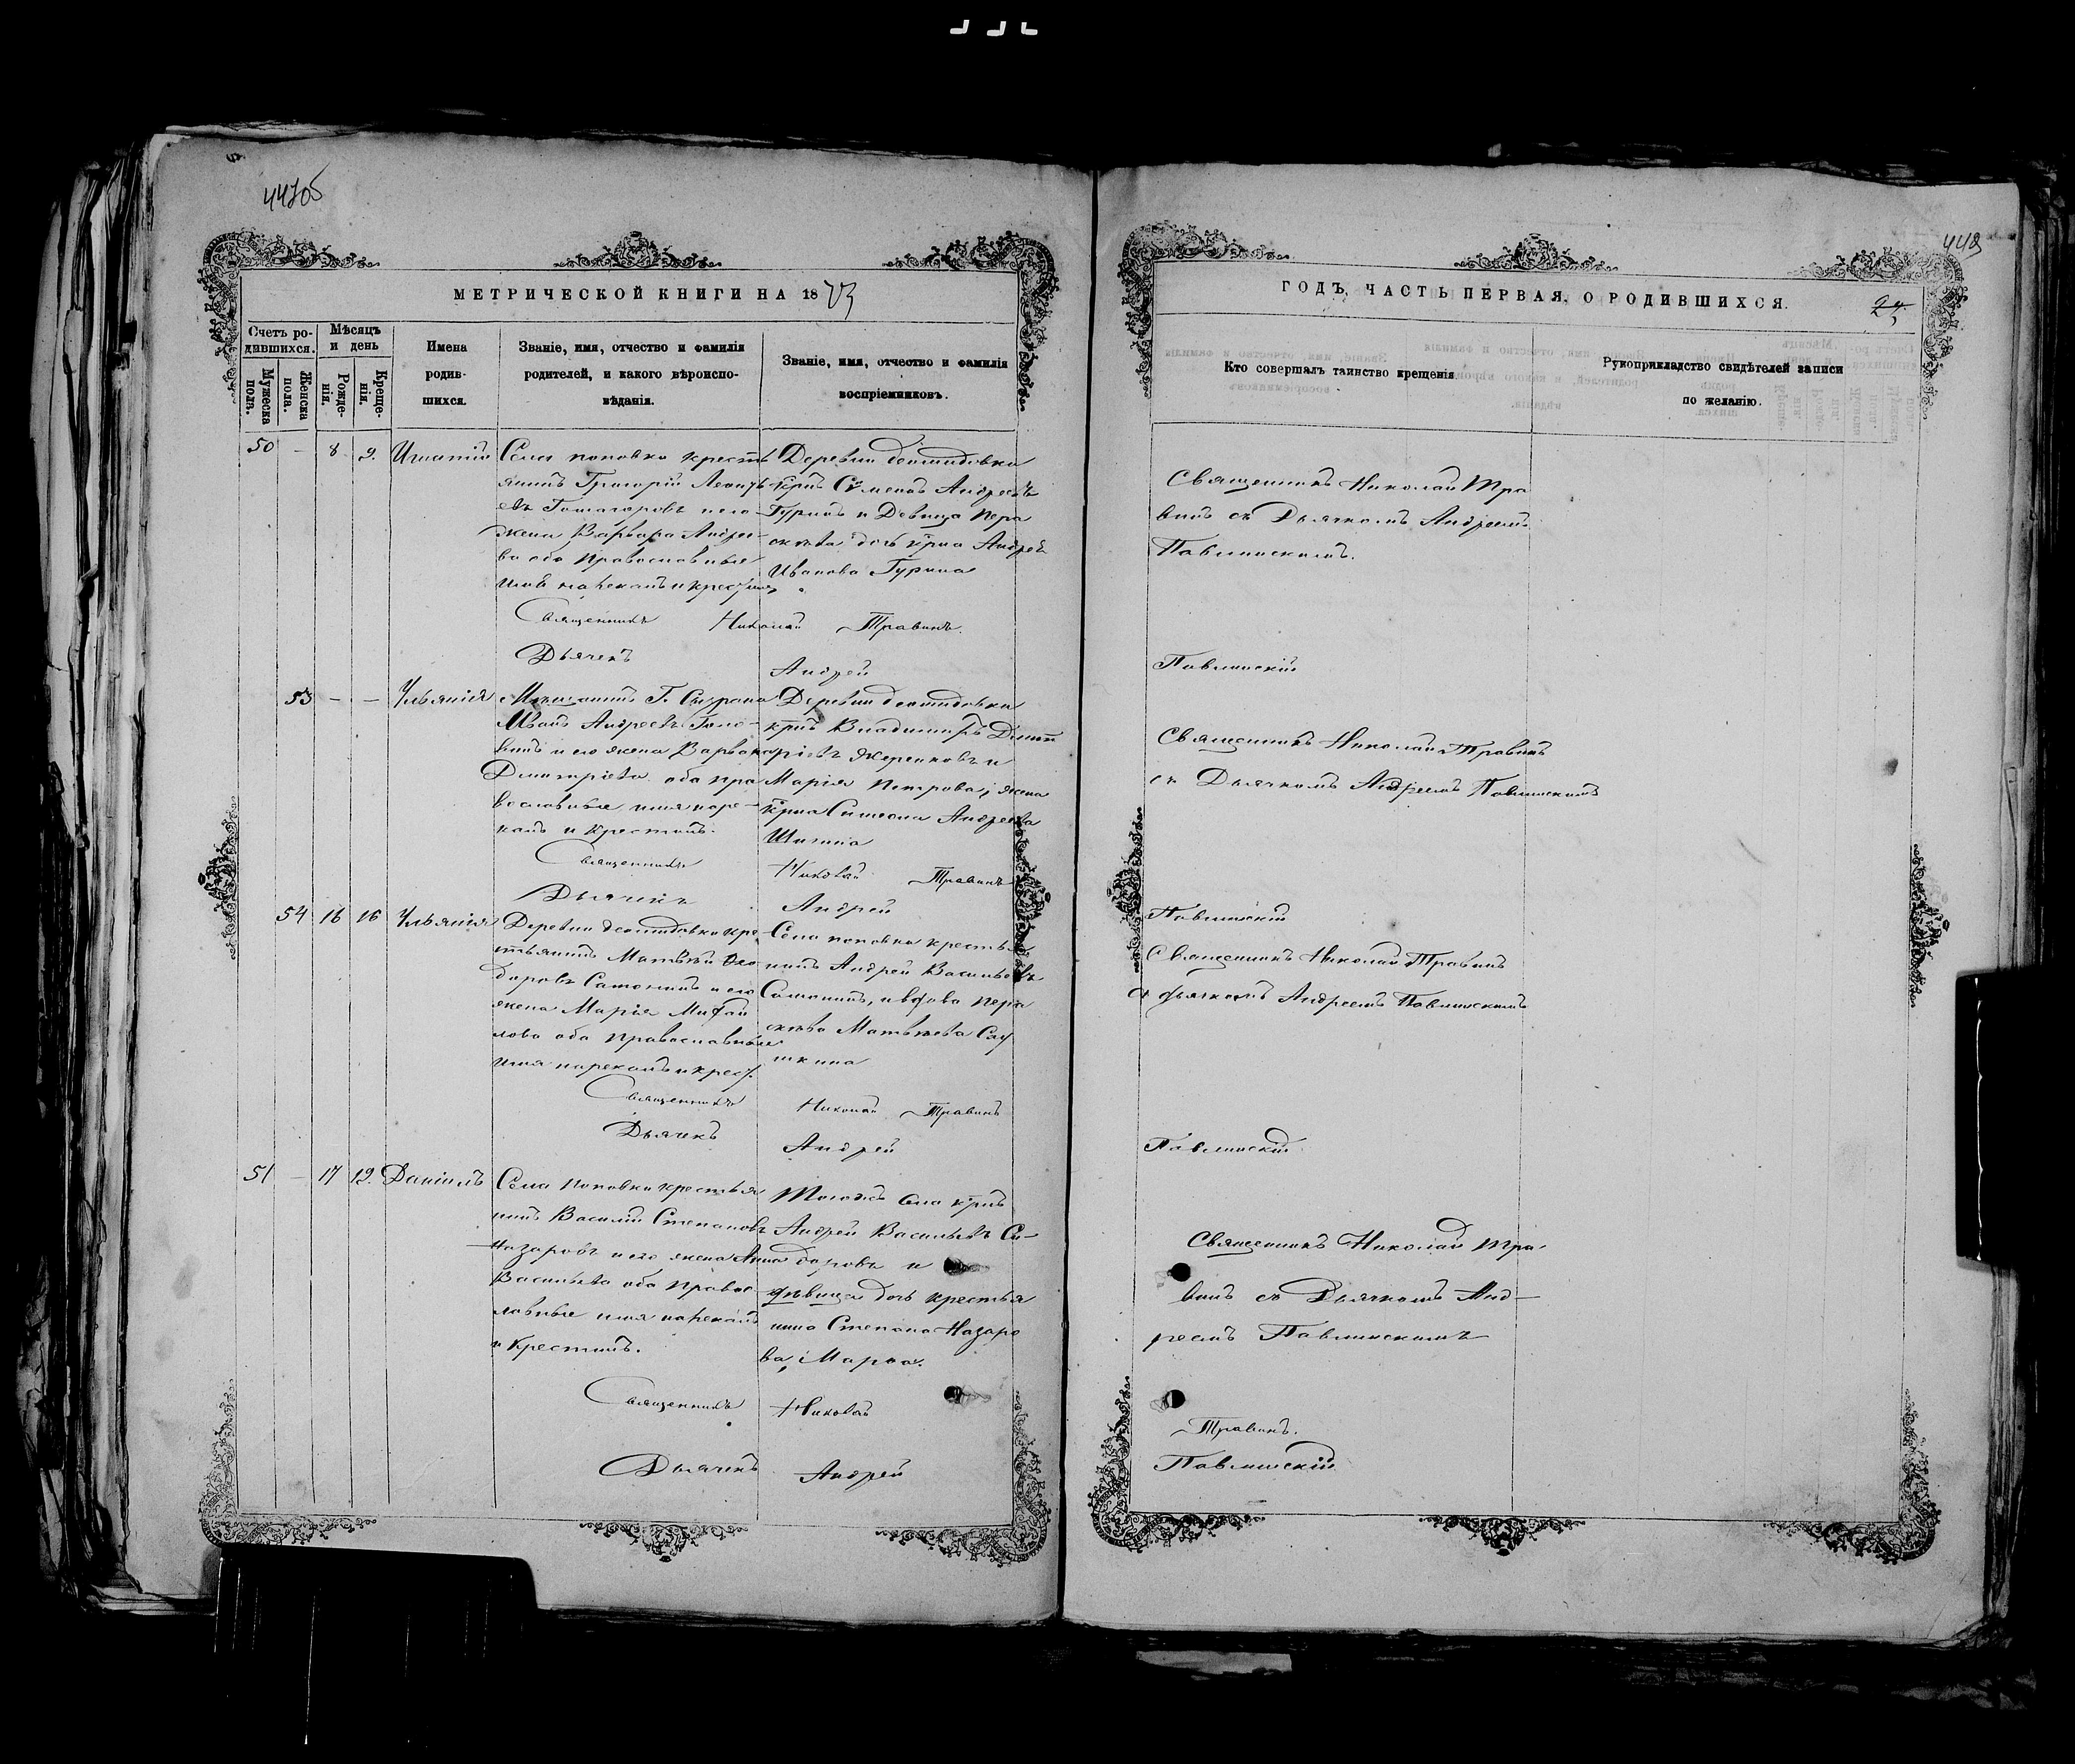 447об
МЕТРИЧЕСКОЙ КНИГИ НА 1873
Счетъ ро-
дившихся.
Мѣсяцъ
и день
Мужеска
пола.
Женска
пола.
Рожде-
нія.
Креще-
нія.
Имена
родив-
шихся.
Званіе, имя, отчество и фамилія
родителей, и какого вѣроиспо-
вѣданія.
Званіе, имя, отчество и фамилія
воспріемниковъ.
50 - 8 9. Игнатій
Села поповки кресть
янинъ Григорій Леонть
евъ и его
жена Варвара Андрее-
ва оба православные
имя нарекалъ и крест
Деревни
Андреевъ
Гуринъ и Девица пера
скева дочь Андрей
Иванова Гурина
Священникъ Николай Травинъ.
Дьячекъ Андрей
53 - - Ульянія
Мещанинъ Г. Сызрана
Иванъ Андреевъ
и его жена Варвара
Дмитриева оба пра
вославные имя наре-
калъ и крестилъ.
Деревни
Владимиръ
и
Марія Петрова, жена
Симеона Андреева
Священникъ Николай Травинъ
Дьячекъ Андрей
54 16 16 Ульянія
Деревни кре
стьянинъ Матвѣй Фео
доровъ и его
жена Марія Михаи
лова оба православные
имя нарекалъ и крест.
Села поповки крестья
нинъ Андрей Васильевъ
и вдова пера
скева Матвѣева Сау
шкина
Священникъ Николай Травинъ
Дьячекъ Андрей
51 - 17 19. Даніилъ
Села Поповки крестья
нинъ Василій Степановъ
Назаровъ и его жена Анна
Васильева оба правос
лавные имя нарекалъ
и крестилъ.
Тогожъ села
Андрей Васильевъ Си-
доровъ и
дѣвица дочь крестья
нина Степана Назаро
ва, Марѳа.
Священникъ Николай
Дьячекъ Андрей
448
ГОДЪ, ЧАСТЬ ПЕРВАЯ, О РОДИВШИХСЯ.
Кто совершалъ таинство крещенія.
Рукоприкладство свидѣтелей записи
по желанію.
Священникъ Николай Тра
винъ съ Дьячкомъ Андреемъ
Павлинскимъ.
Павлинскій
Священникъ Николай Травинъ
съ Дьячкомъ Андреемъ Павлинскимъ
Павлинскій
Священникъ Николай Травинъ
съ дьячкомъ Андреемъ Павлинскимъ
Павлинскій
Священникъ Николай Тра-
винъ съ Дьячкомъ Анд-
реемъ Павлинскимъ
Травинъ.
Павлинскій